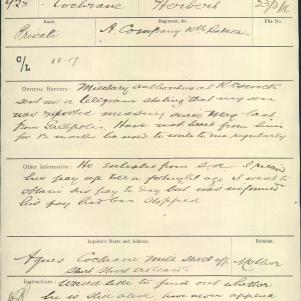 928 Cochrane Herbert 23/3/16
Rank Regiment, &c. File No.
Private A. Company 10th Battn.
C/L 23-17.
OFFICIAL REPORTS: Military authorities at
sent me a telegram stating that my son
was reported missing since May last
from Gallipoli. Have not heard from him
for 12 months he used to write to me regularly
OTHER INFORMATION: He enlisted from S.A. I
his pay up till a fortnight ago. I went to
obtain his pay to day but was informed
his pay had been stopped
Inquirer's Name and Address. Relation.
Agnes Cochrane Mill Street off Mother
Street
Instructions: Would like to find out whether
he is still alive, have never